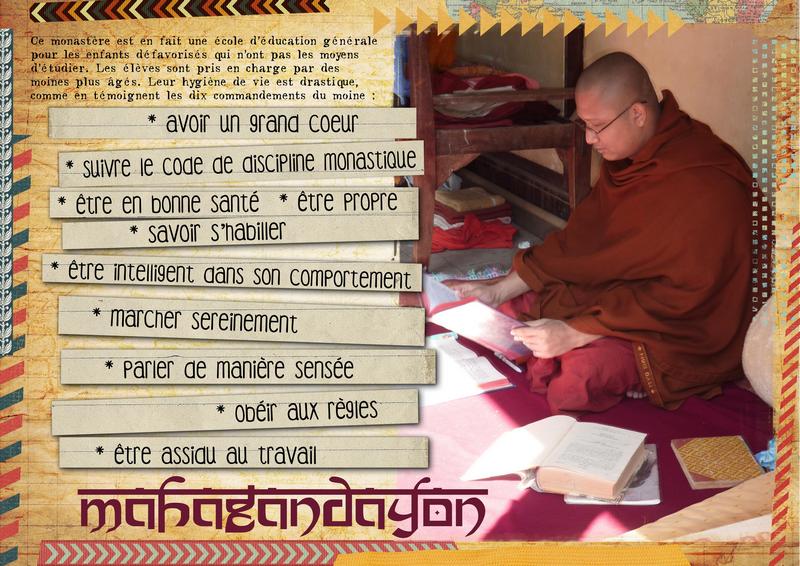 Ce monastère est en fait une école d'éducation générale
pour les enfants défavorisés qui n'ont pas les moyens
d'étudier. Les élèves sont pris en charge par des
moines plus âgés. Leur hygiène de vie est drastique,
comme en témoignent les dix commandements du moine :
* avoir un grand coeur
* suivre le code de discipline monastique
* être en bonne santé * être propre
* savoir s'habiller
* être intelligent dans son comportement
* marcher sereinement
* parler de manière sensée
* obéir aux règles
* être assidu au travail
mahagandayon